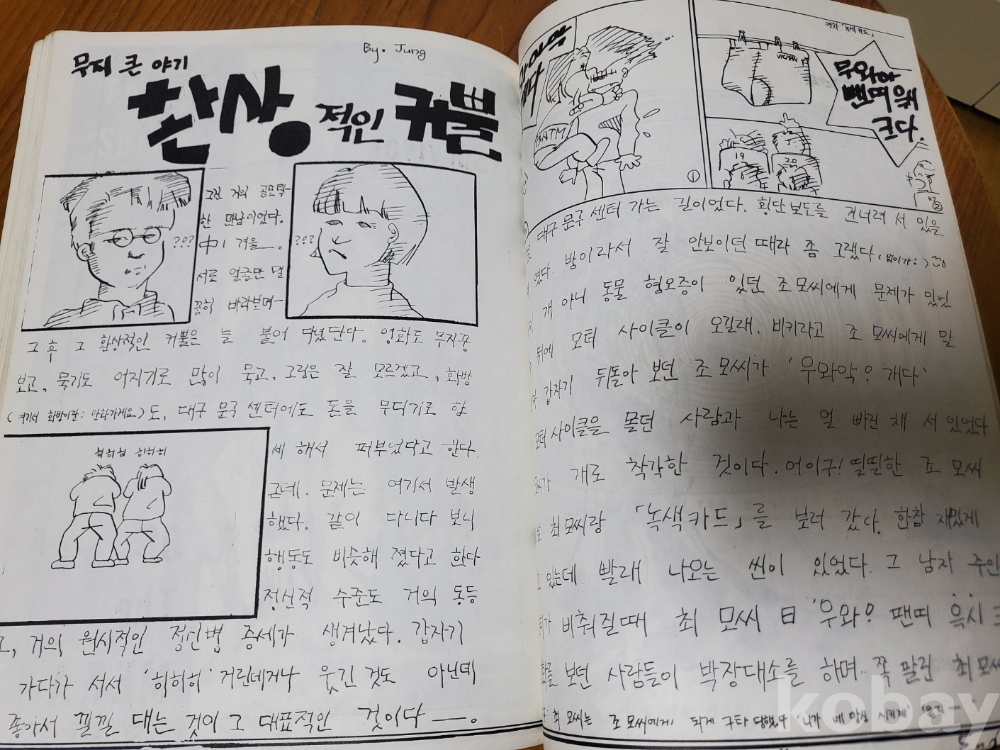 By. Jung
무지 큰 야기
환상적인 커쁠
그건 거의 공포탁
한 만남이었다.
서로 얼굴만 덜
???
???
그 후 그 환상적인 커쁠은 늘 붙어 다녔단다. 영화도 무지
보고, 묵기도 어지기로 많이 묵고, 그림은 잘 모르겠고, 회방
도, 대구 문구 센터에도 돈을 무더기로 합
세 해서 퍼부었다고 한다
히히히 히히히
근데. 문제는 여기서 발생
했다. 같이 다니다 보니
행동도 비슷해 졌다고 한다
정신적 수준도 거의 동등
고, 거의 원시적인 정신병 증세가 생겨났다. 갑자기
가다가 서서 '히히히' 거린네거나 웃긴 것도 아닌데
좋아서 낄낄 대는 것이 그 대표적인 것이다 —.
영화 「녹색카드」
우와아
뺀띠 윽씨
크다.
19
20
①
대구 문구 센터 가는 길이었다. 횡단 보도를 건너려 서 있을
밤이라서 잘 안보이던 때라 좀 그랬다
개 아니 동물 혐오증이 있던 조 모씨에게 문제가 있었
뒤에 모터 사이클이 오길래. 비키라고 조 모씨에게 말
갑자기 뒤돌아 보던 조 모씨가 '우와악! 개다'
모터 사이클을 몰던 사람과 나는 얼 빠진 채 서 있었다
개로 착각한 것이다. 어이구! 띨띨한 조 모씨
최 모씨랑 「녹색 카드」를 보러 갔다. 한참 재밌게
있는데 빨래 나오는 씬이 있었다. 그 남자 주인
비춰질때 최 모씨 曰 '우와! 팬띠 윽시 크
보던 사람들이 박장대소를 하며. 쪽 팔린 최 모씨
최 모씨는 조 모씨에게 되게 구타 당했다
kobay